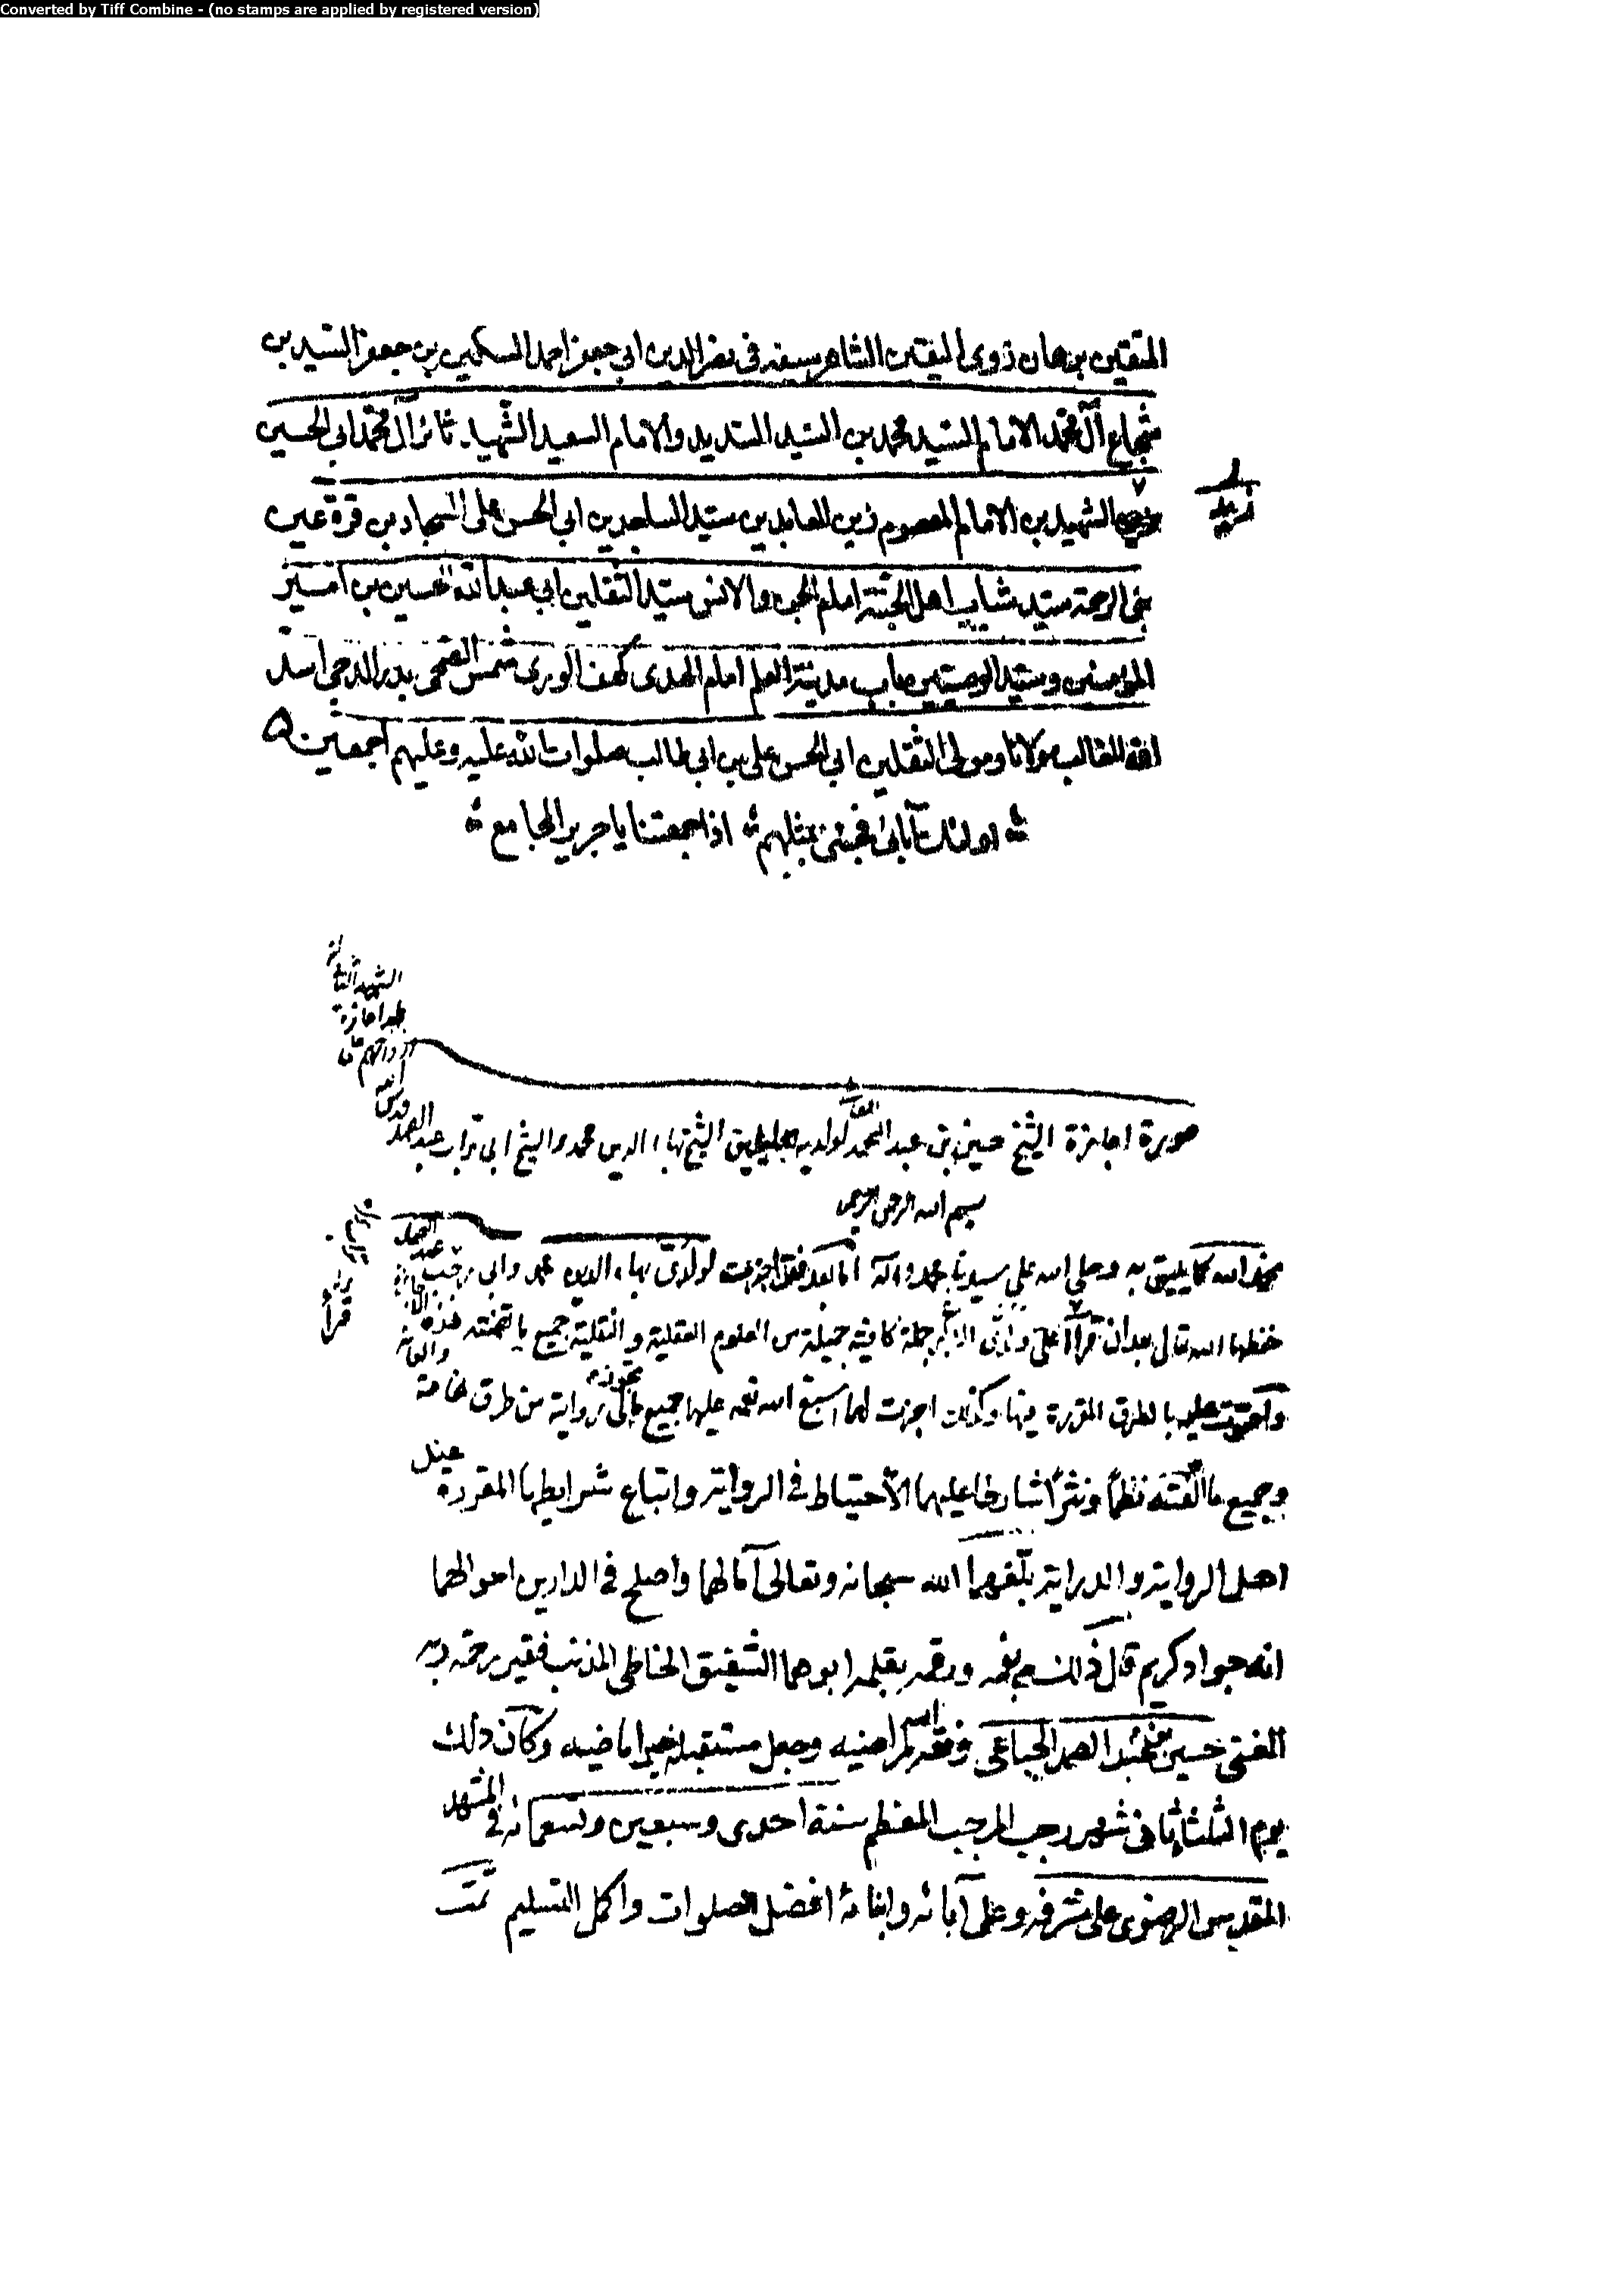 Converted by Tiff Combine - (no stamps are applied by registered version)
المتقين برهان ذوى اليقين الشاهر سيفه فى نصر الدين ابى جعفر احمد السكين بن جعفر السيد بن
شجاع آل محمد الامام السيد محمد بن السيد السديد والامام السعيد الشهيد ثائر آل محمد ابى الحسين
زيد
الشهيد بن الامام المعصوم زين العابدين سيد الساجدين ابى الحسن على السجاد بن قرة عين
نبى الرحمة سيد شباب اهل الجنة امام الجن والانس سيد الثقلين ابى عبد الله الحسين بن امير
المؤمنين وسيد الوصيين باب مدينة العلم امام الهدى كهف الورى شمس الضحى بدر الدجى اسد
الله الغالب مولانا ومولى الثقلين ابى الحسن على بن ابى طالب صلوات الله عليه وعليهم اجمعين
اولئك آبائى فجئنى بمثلهم اذا جمعتنا يا جرير المجامع
صورة اجازة الشيخ حسين بن عبد الصمد لولديه الجليلين الشيخ بهاء الدين محمد والشيخ ابى تراب عبد الصمد
بسم الله الرحمن الرحيم
نحمد الله كما يليق به وصلى الله على سيدنا محمد وآله اما بعد فقد اجزت لولدى بهاء الدين محمد وابى تراب عبد الصمد
حفظهما الله تعالى بعد ان قرأ على ولدى الاكبر جملة كافية جميلة من العلوم العقلية والنقلية جميع ما تضمنته هذه الاجازة
بالطرق المقررة فيها وكذلك اجزت لهما اسبغ الله نعمه عليهما جميع ما لى رواية من طرق خاصة
وجميع ما الفته نظما ونثرا شارطا عليهما الاحتياط فى الرواية واتباع شرايطها المقررة عند
اهل الرواية والدراية بلغهما الله سبحانه وتعالى آمالهما واصلح فى الدارين احوالهما
انه جواد كريم قال ذلك بفمه ورقمه بقلمه ابوهما الشفيق الخاطى المذنب فقير رحمة ربه
الغنى حسين بن عبد الصمد الجباعى وفقه الله لمراضيه وجعل مستقبله خيرا ماضيه وكان ذلك
يوم الثلثا ثانى شهر رجب المرجب المعظم سنة احدى وسبعين وتسعمائة فى المشهد
المقدس الرضوى على مشرفه وعلى آبائه وابنائه افضل الصلوات واكمل التسليم تمت